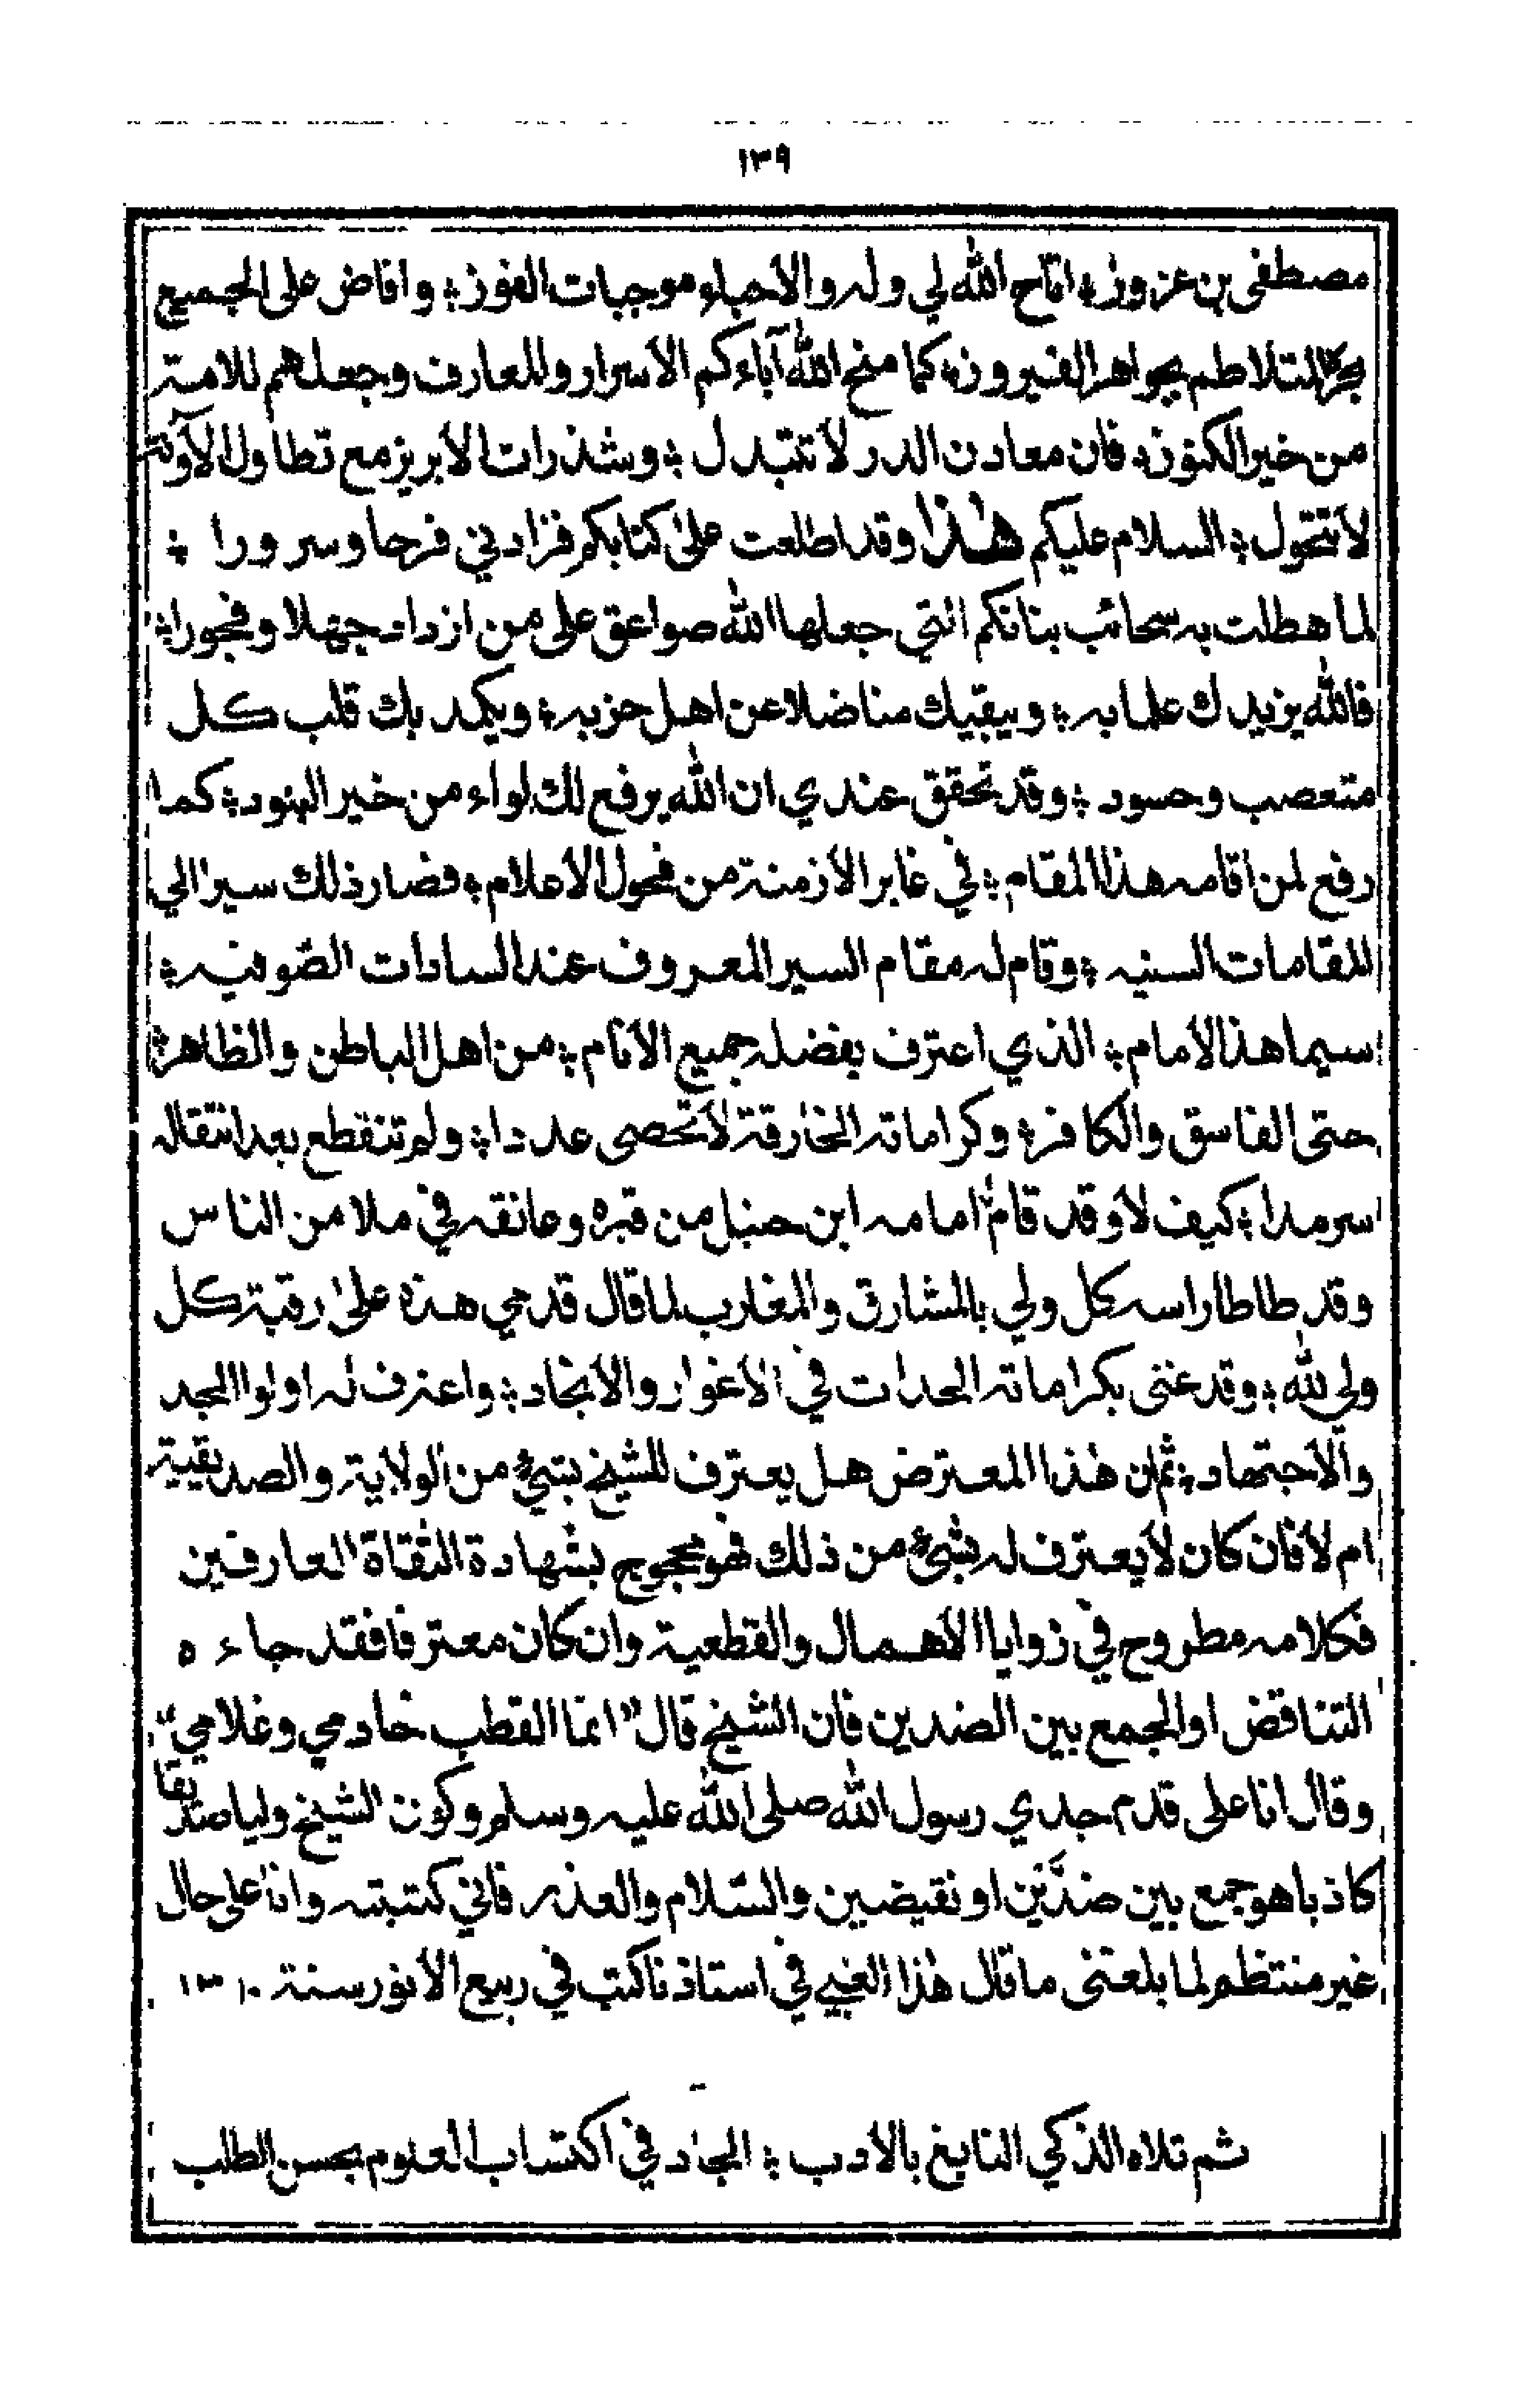 ١٣٩
مصطفى بن عزوز ؛ اتاح الله لي وله والاحباء موجبات الفوز ؛ وافاض على الجميع
بحره المتلاطم بجواهر الفيروز ؛ كما منح الله آباءكم الأسرار والمعارف وجعلهم للامة
من خير الكنوز ؛ فان معادن الدر لا تتبدل ؛ وشذرات الأبريز مع تطاول الآونة
لا تتحول ؛ السلام عليكم هذا وقد اطلعت على كتابكم فزادني فرحا وسرورا ؛
لما هطلت به سحائب بنانكم التي جعلها الله صواعق على من ازداد جهلا وفجورا ؛
فالله يزيدك علما به ؛ ويبقيك مناضلا عن اهل حزبه ؛ ويكمد بك قلب كل
متعصب وحسود ؛ وقد تحقق عندي ان الله يرفع لك لواء من خير البنود ؛ كما
رفع لمن اقامه هذا المقام ؛ في غابر الأزمنة من فحول الأعلام ؛ فصار ذلك سيرا الي
المقامات السنيه ؛ وقام له مقام السير المعروف عند السادات الصّوفيه ؛
سيما هذا الأمام ؛ الذي اعترف بفضله جميع الأنام ؛ من اهل الباطن والظاهر ؛
حتى الفاسق والكافر ؛ وكراماته الخارقة لا تحصى عددا ؛ ولم تنقطع بعد انتقاله
سرمدا ؛ كيف لا وقد قام امامه ابن حنبل من قبره وعانقه في ملا من الناس
وقد طاطا راسه كل ولي بالمشارق والمغارب لما قال قدمي هذه على رقبة كل
ولي لله ؛ وقد غنى بكراماته الحداة في الأغوار والأنجاد ؛ واعترف له اولوا المجد
والأجتهاد ؛ ثم ان هذا المعترض هل يعترف للشيخ بشيء من الولاية والصديقية
ام لا فان كان لا يعترف له بشيء من ذلك فهو محجوج بشهادة الثقاة العارفين
فكلامه مطروح في زوايا الأهمال والقطعية وان كان معترفا فقد جاءه
التناقض او الجمع بين الضدين فان الشيخ قال "انما القطب خادمي وغلامي"
وقال انا على قدم جدي رسول الله صلى الله عليه وسلم وكون الشيخ وليا صديقا
كاذبا هو جمع بين ضدّين او نقيضين والسّلام والعذر فاني كتبته وانا على حال
غير منتظم لما بلغني ما قال هذا الغبي في استاذنا كتب في ربيع الأنور سنة ١٣١٠
ثم تلاه الذكي النابغ بالأدب ؛ الجاد في اكتساب العلوم بحسن الطلب